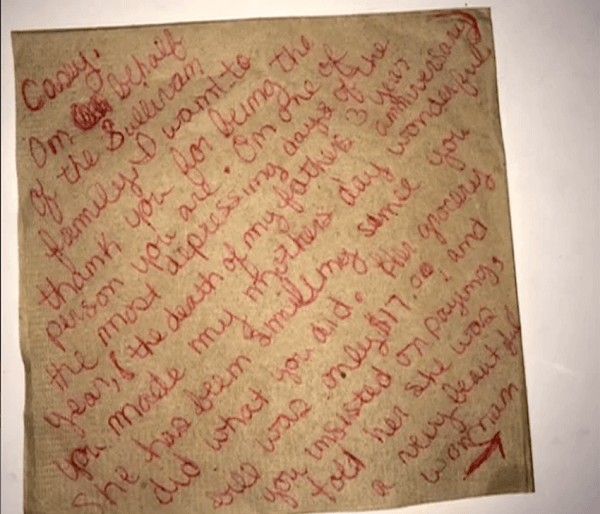 Casey,
On behalf
of the Sullivan
family, I want to
thank you for being the
person you are. On one of
the most depressing days of the
year, (the death of my father's 3 year anniversary)
you made my mother's day wonderful
She has been smiling since you
did what you did. Her grocery
bill was only $17.00, and
you insisted on paying,
told her she was
a very beautiful
woman